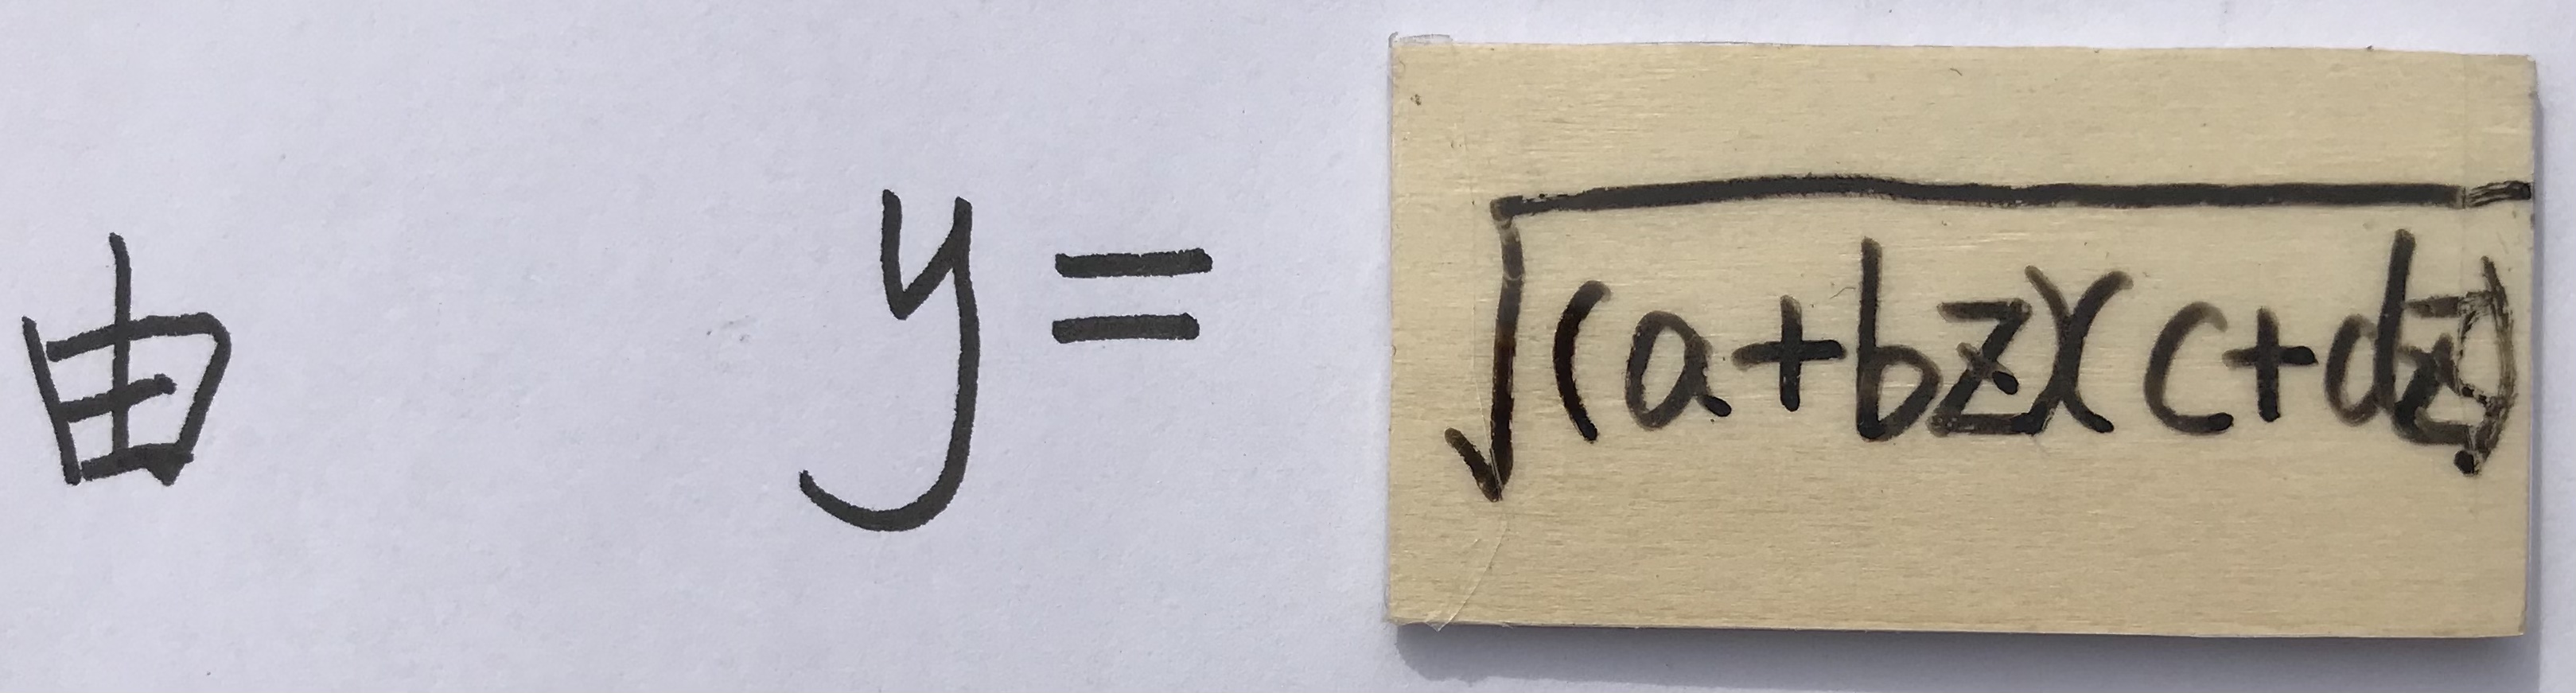 由 y = √(a+bz)(c+dz)